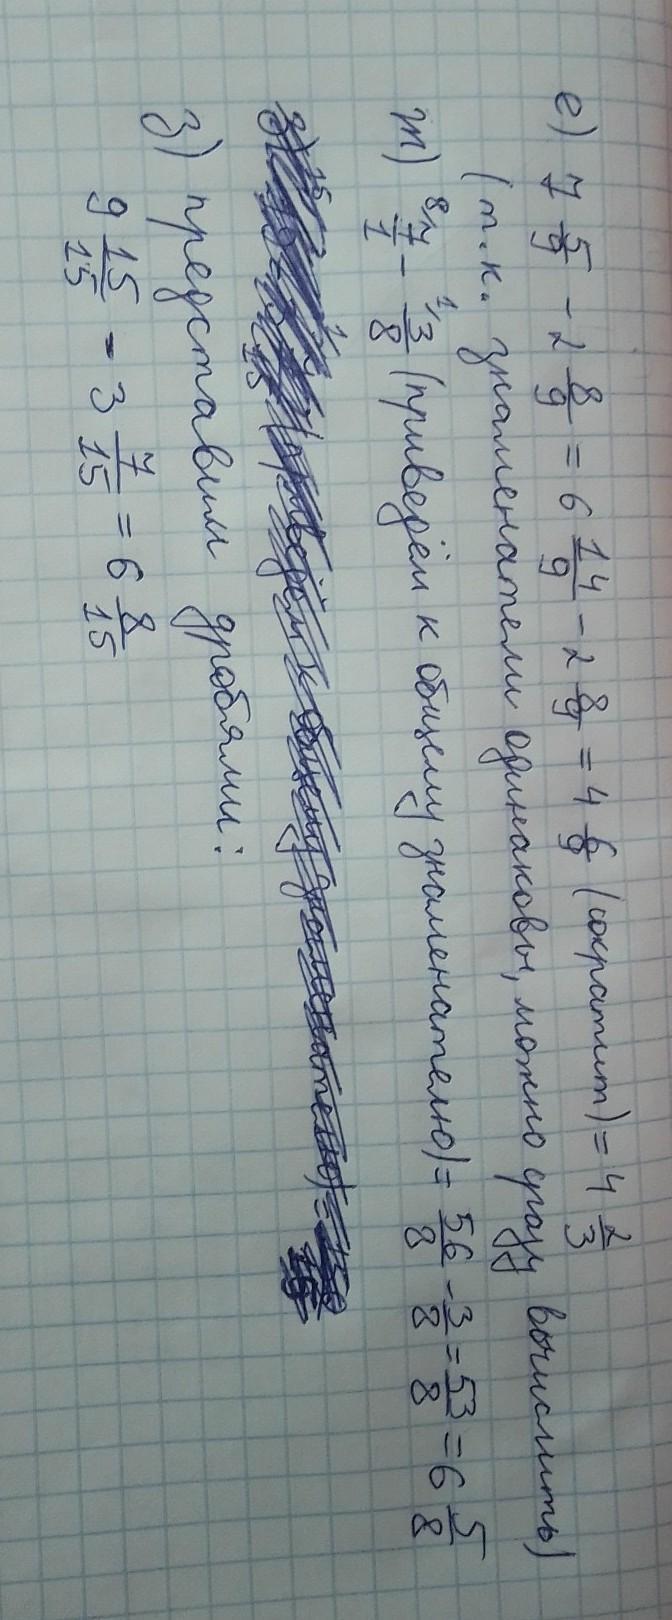 е) 7 5/9 - 2 8/9 = 6 14/9 - 2 8/9 = 4 6/9 (сократит) = 4 2/3
(т.к. знаменатели одинаковы, можно сразу вычислить)
т) 8\ 7/1 - 1\ 3/8 (приведём к общему знаменателю) = 56/8 - 3/8 = 53/8 = 6 5/8
з) представим дробями:
9 15/15 - 3 7/15 = 6 8/15